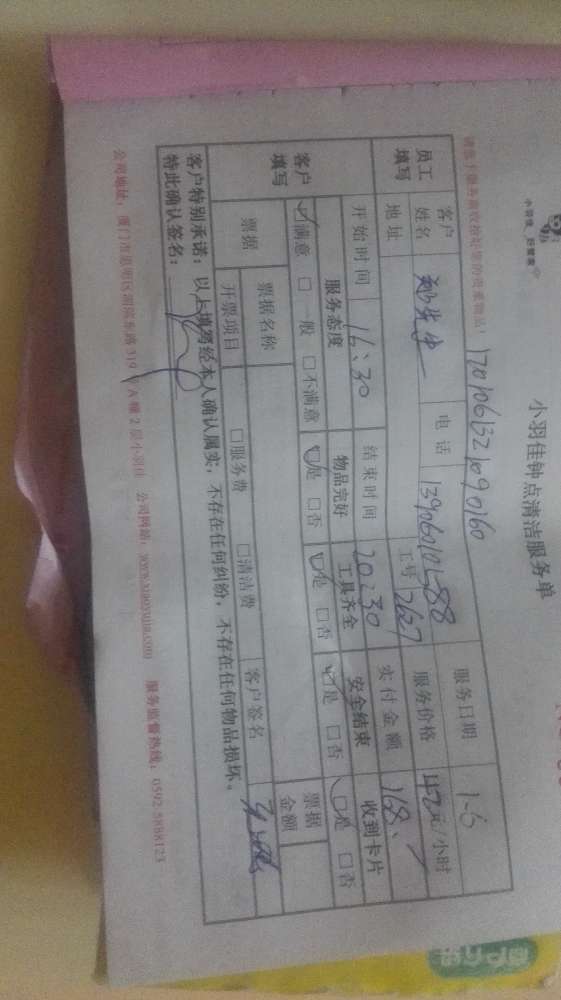 小羽佳 好管家
小羽佳钟点清洁服务单
1701061321090160
员工填写
客户姓名 电话 服务日期 1-6
地址 工号 2627 服务价格 42元/小时
开始时间 16:30 结束时间 20:30 实付金额 168
客户填写
服务态度 物品完好 工具齐全 安全结束 收到卡片
☑满意 □一般 □不满意 ☑是 □否 ☑是 □否 ☑是 □否 ☑是 □否
票据 票据名称 票据金额
开票项目 □服务费 □清洁费 客户签名
客户特别承诺：以上填写经本人确认属实，不存在任何纠纷，不存在任何物品损坏。
特此确认签名：
公司地址：厦门市思明区湖滨东路319号A幢2层小羽佳 公司网站：www.xiaoyujia.com 服务监督热线：0592-5888123